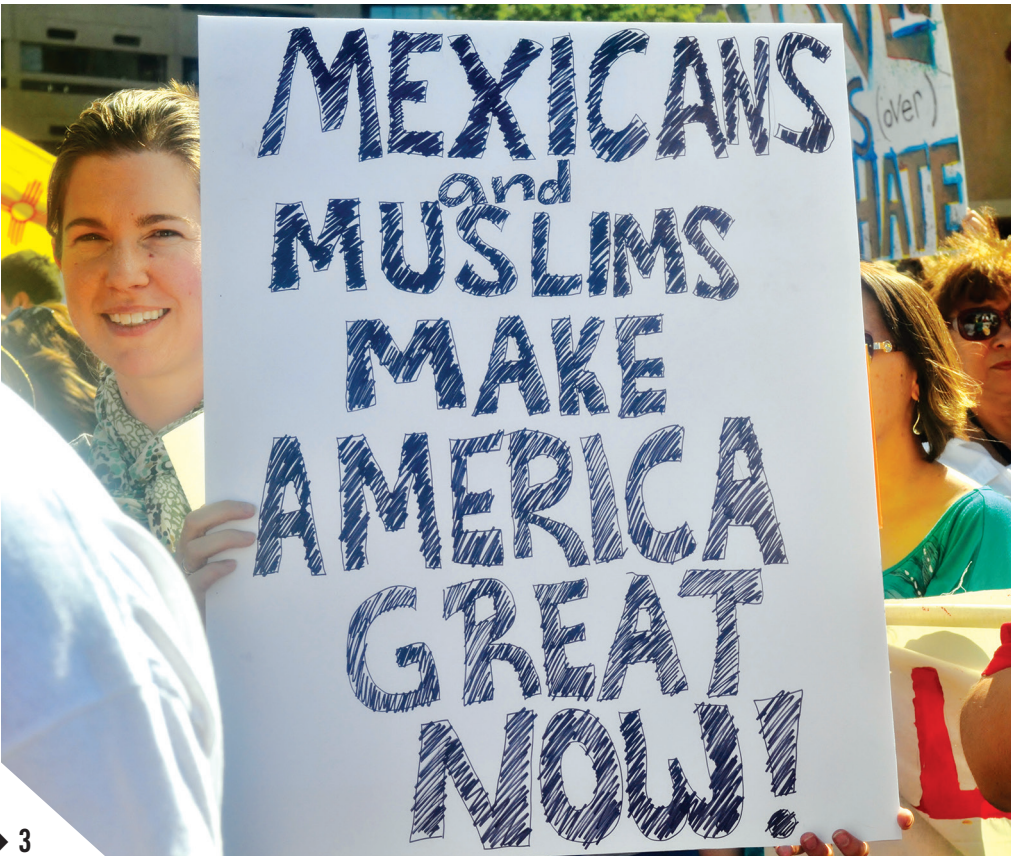 MEXICANS
and
MUSLIMS
MAKE
AMERICA
GREAT
NOW!
(over)
HATE
L
3